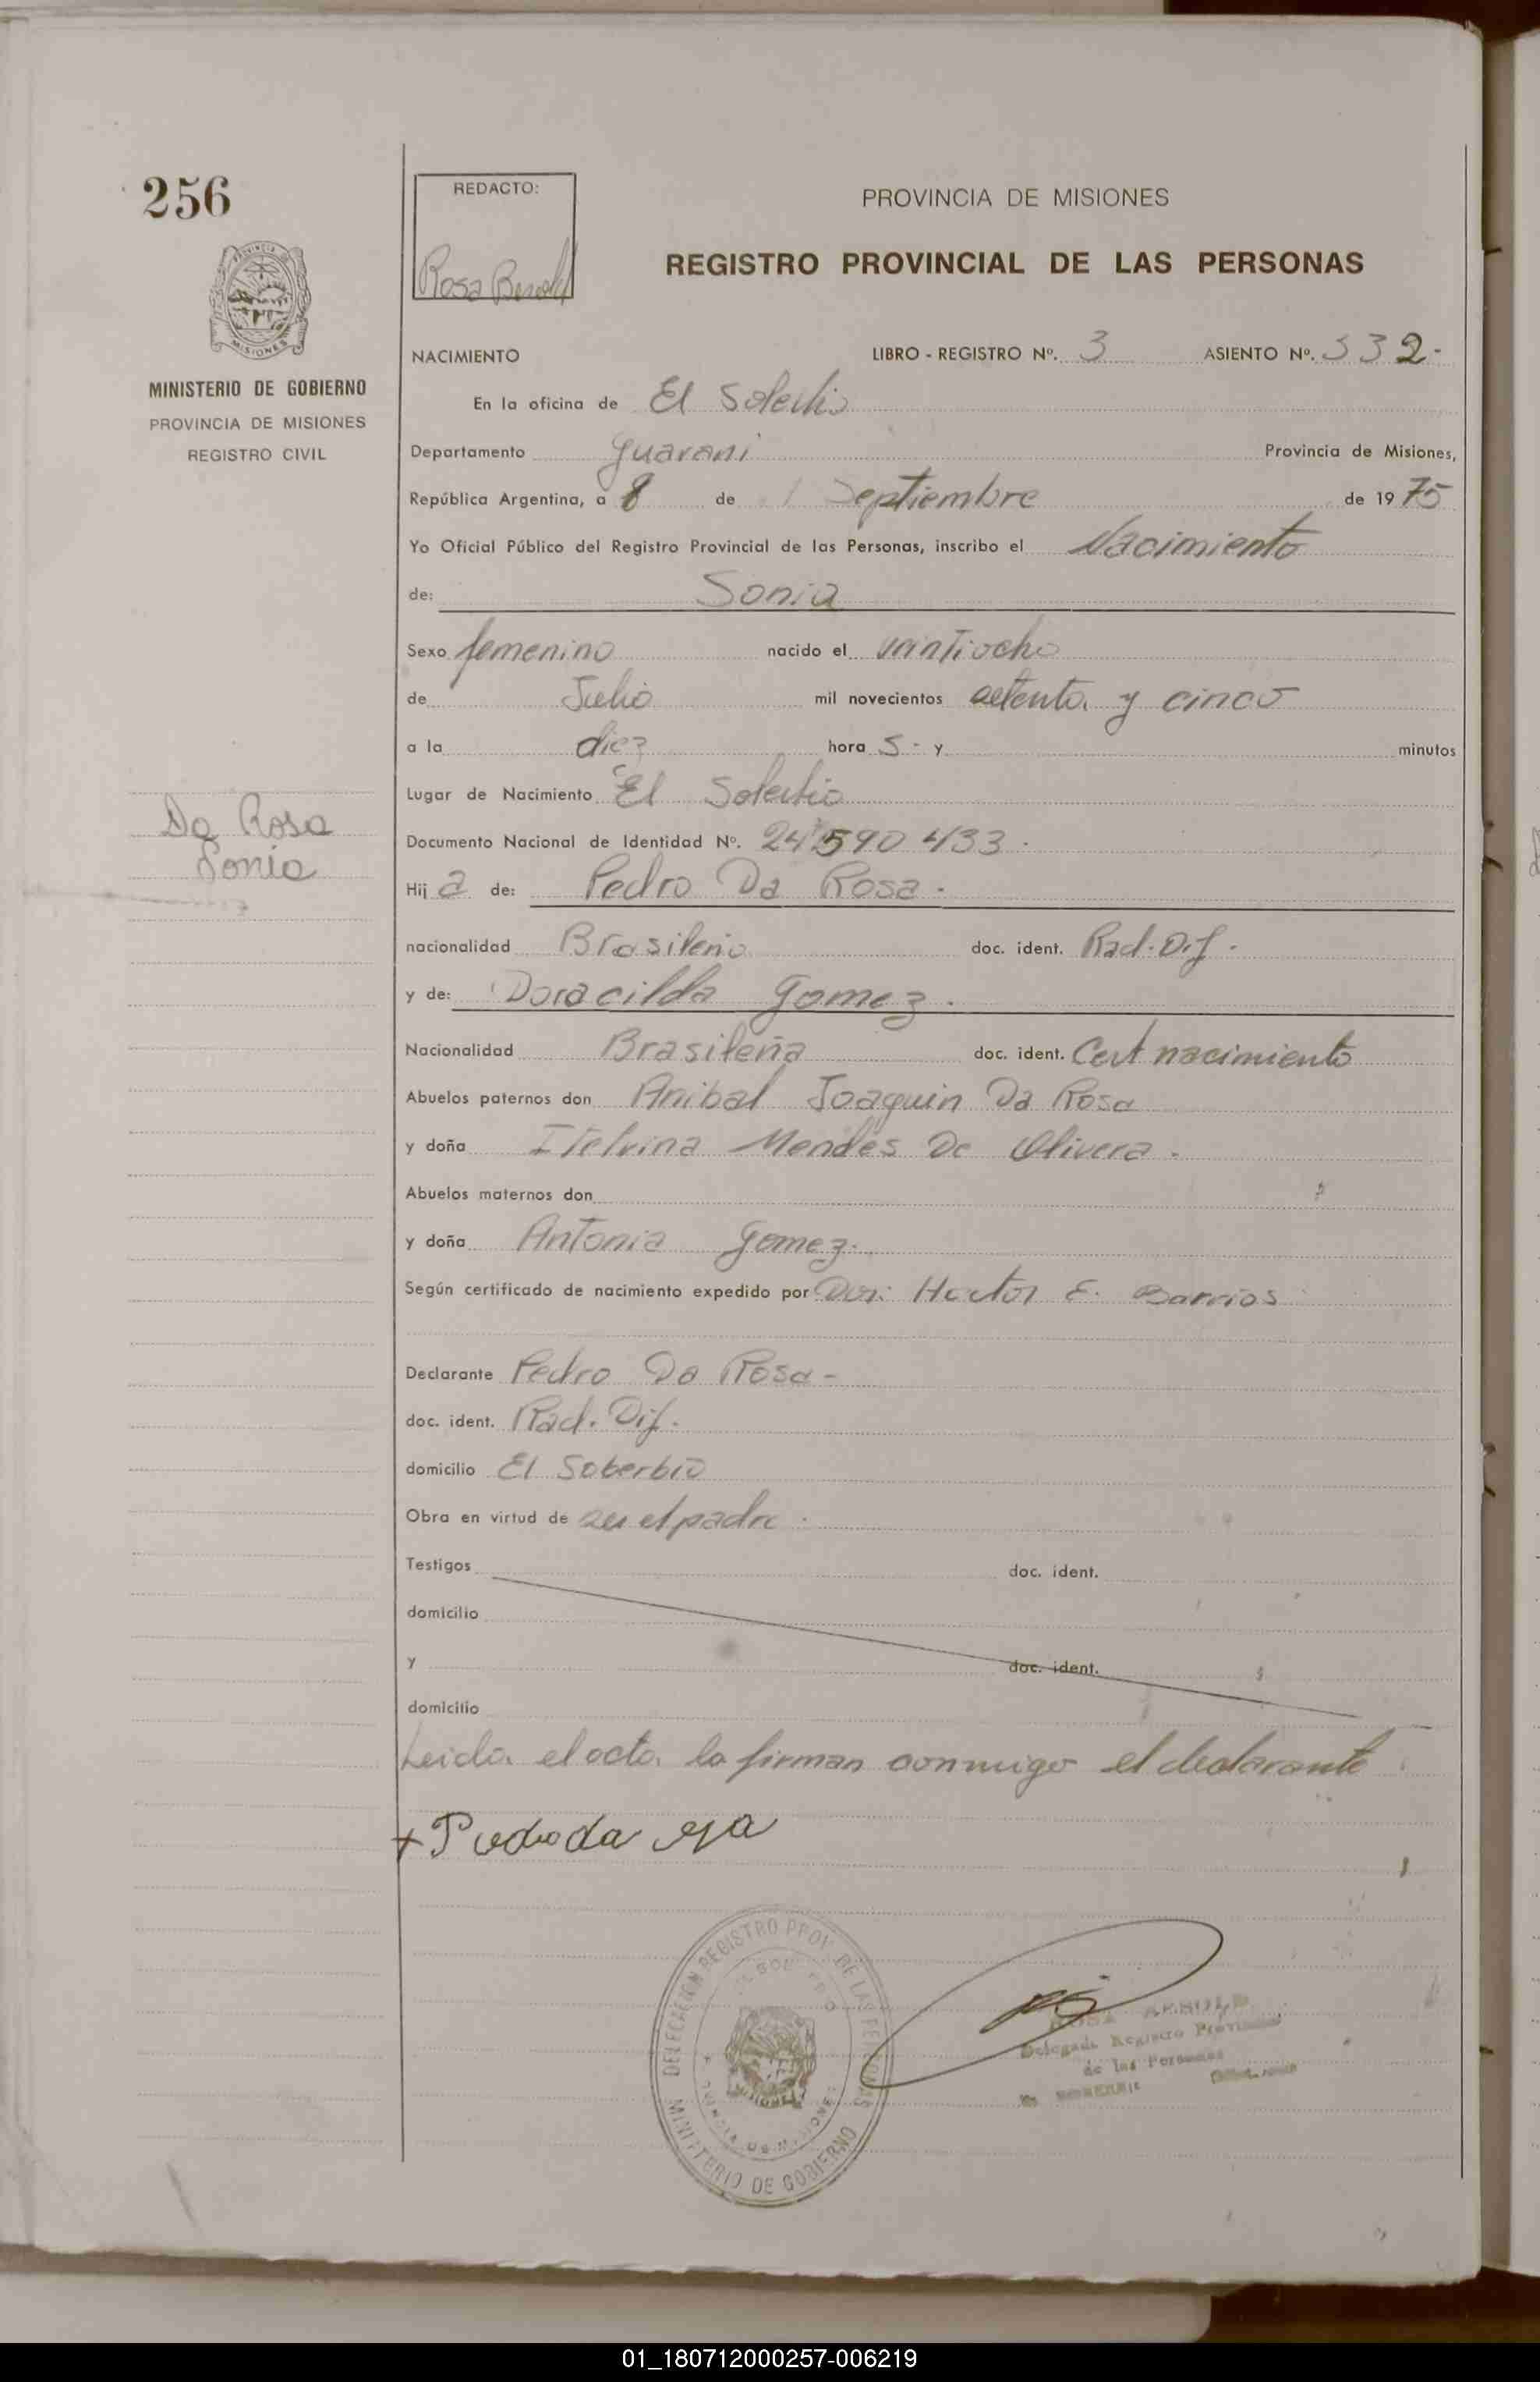 256
REDACTO:
Rosa
PROVINCIA DE MISIONES
REGISTRO PROVINCIAL DE LAS PERSONAS
PROVINCIA
MISIONES
MINISTERIO DE GOBIERNO
PROVINCIA DE MISIONES
REGISTRO CIVIL
NACIMIENTO LIBRO - REGISTRO Nº. 3 ASIENTO Nº. 332-
En la oficina de El Soberbio
Departamento Guarani Provincia de Misiones,
República Argentina, a 8 de Septiembre de 1975
Yo Oficial Público del Registro Provincial de las Personas, inscribo el Nacimiento
de: Sonia
Sexo femenino nacido el veintiocho
de Julio mil novecientos setenta y cinco
a la diez hora s - y minutos
Lugar de Nacimiento El Soberbio
Da Rosa
Sonia
Documento Nacional de Identidad Nº. 24 590 433 -
Hij a de: Pedro Da Rosa -
nacionalidad Brasileño doc. ident. Rad. Dif -
y de: Doracilda Gomez.
Nacionalidad Brasileña doc. ident. Cert nacimiento
Abuelos paternos don Anibal Joaquin Da Rosa
y doña Itelvina Mendes De Olivera -
Abuelos maternos don
y doña Antonia Gomez.
Según certificado de nacimiento expedido por Hector E. Barrios
Declarante Pedro Da Rosa -
doc. ident. Rad. Dif.
domicilio El Soberbio
Obra en virtud de ser el padre.
Testigos doc. ident.
domicilio
y doc. ident.
domicilio
Leida el acta la firman conmigo el declarante
+
DELEGACION REGISTRO PROV. DE LAS PERSONAS
MINISTERIO DE GOBIERNO
Delegada Registro Provincial
de las Personas
01_180712000257-006219